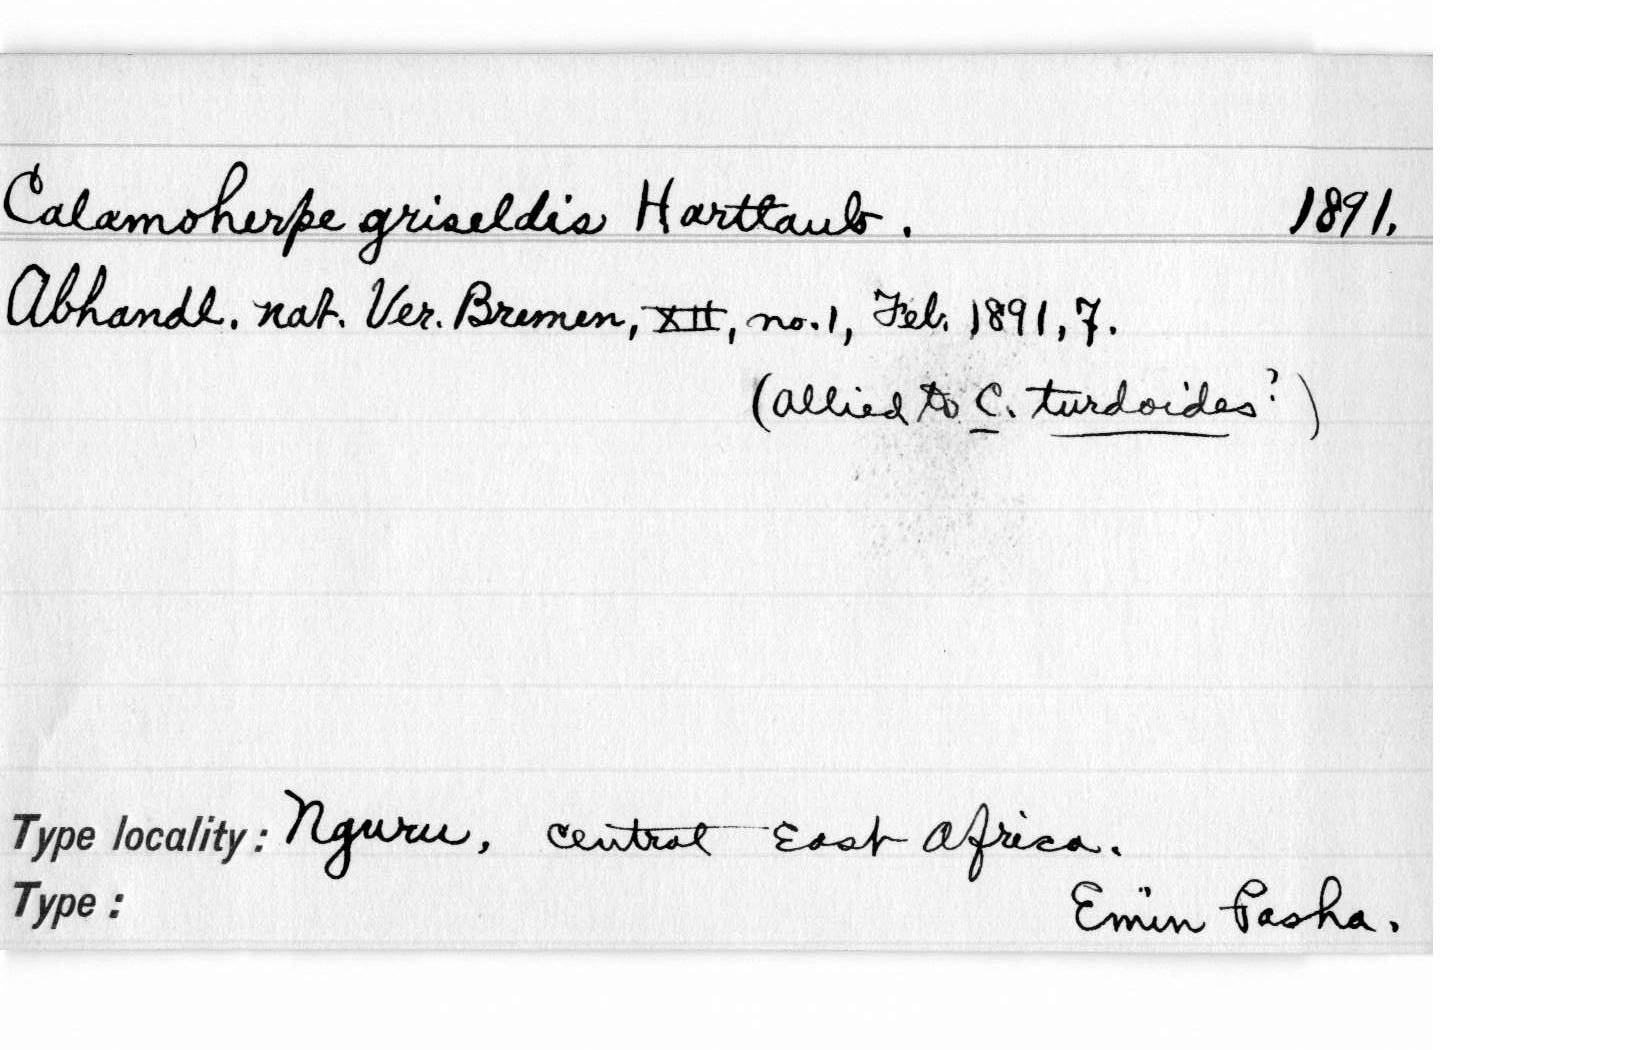 Calamoherpe griseldis Hartlaub. 1891.
Abhandl. nat. Ver. Bremen, XII, no. 1, Feb. 1891, 7.
(allied to C. turdoides?)
Type locality: Nguru, central East Africa.
Type: Emin Pasha.